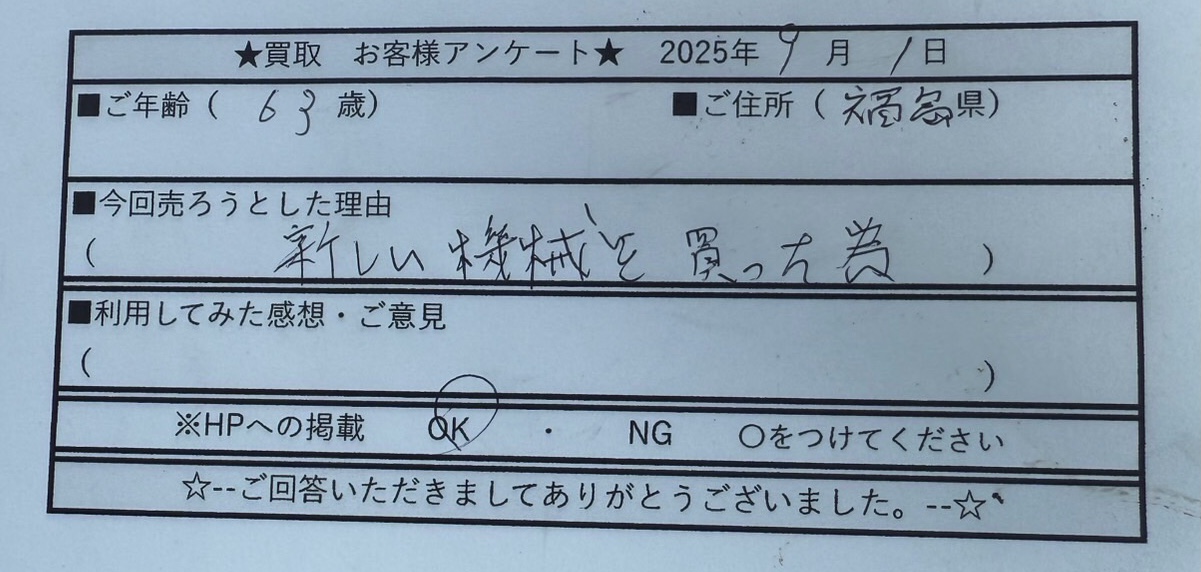 ★買取 お客様アンケート★ 2025年 9 月 1 日
■ご年齢 ( 63 歳) ■ご住所 ( 福島県)
■今回売ろうとした理由
( 新しい機械を買った為 )
■利用してみた感想・ご意見
( )
※HPへの掲載 OK ・ NG 〇をつけてください
☆--ご回答いただきましてありがとうございました。--☆